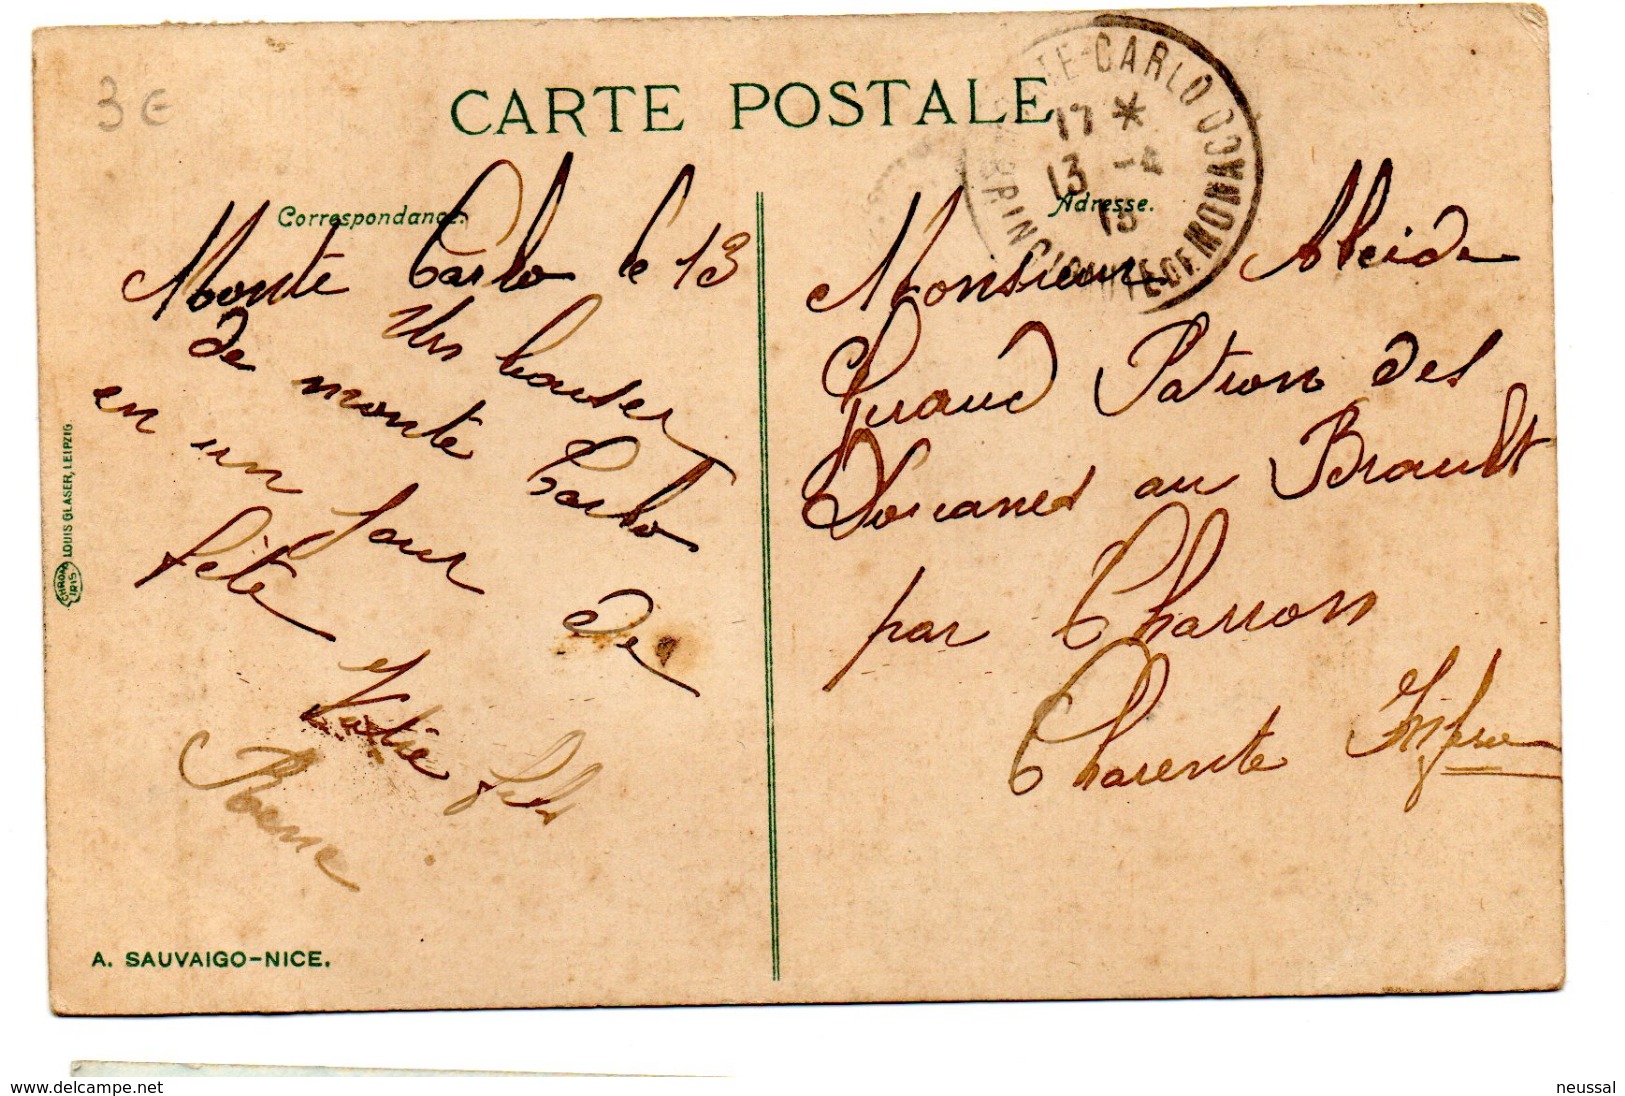 3 €
CARTE POSTALE
TE-CARLO
PRINCIPAUTE DE MONACO
17 *
13 -4
15
Correspondance.
Adresse.
Monte Carlo le 13
Un baiser
de monte Carlo
en un jour de
fête
Votre fils
Pierre
Monsieur Alcide
Grand Patron des
Douanes au Brault
par Charron
Charente Infre
CHROMO IRIS
LOUIS GLASER, LEIPZIG.
A. SAUVAIGO-NICE.
www.delcampe.net
neussal